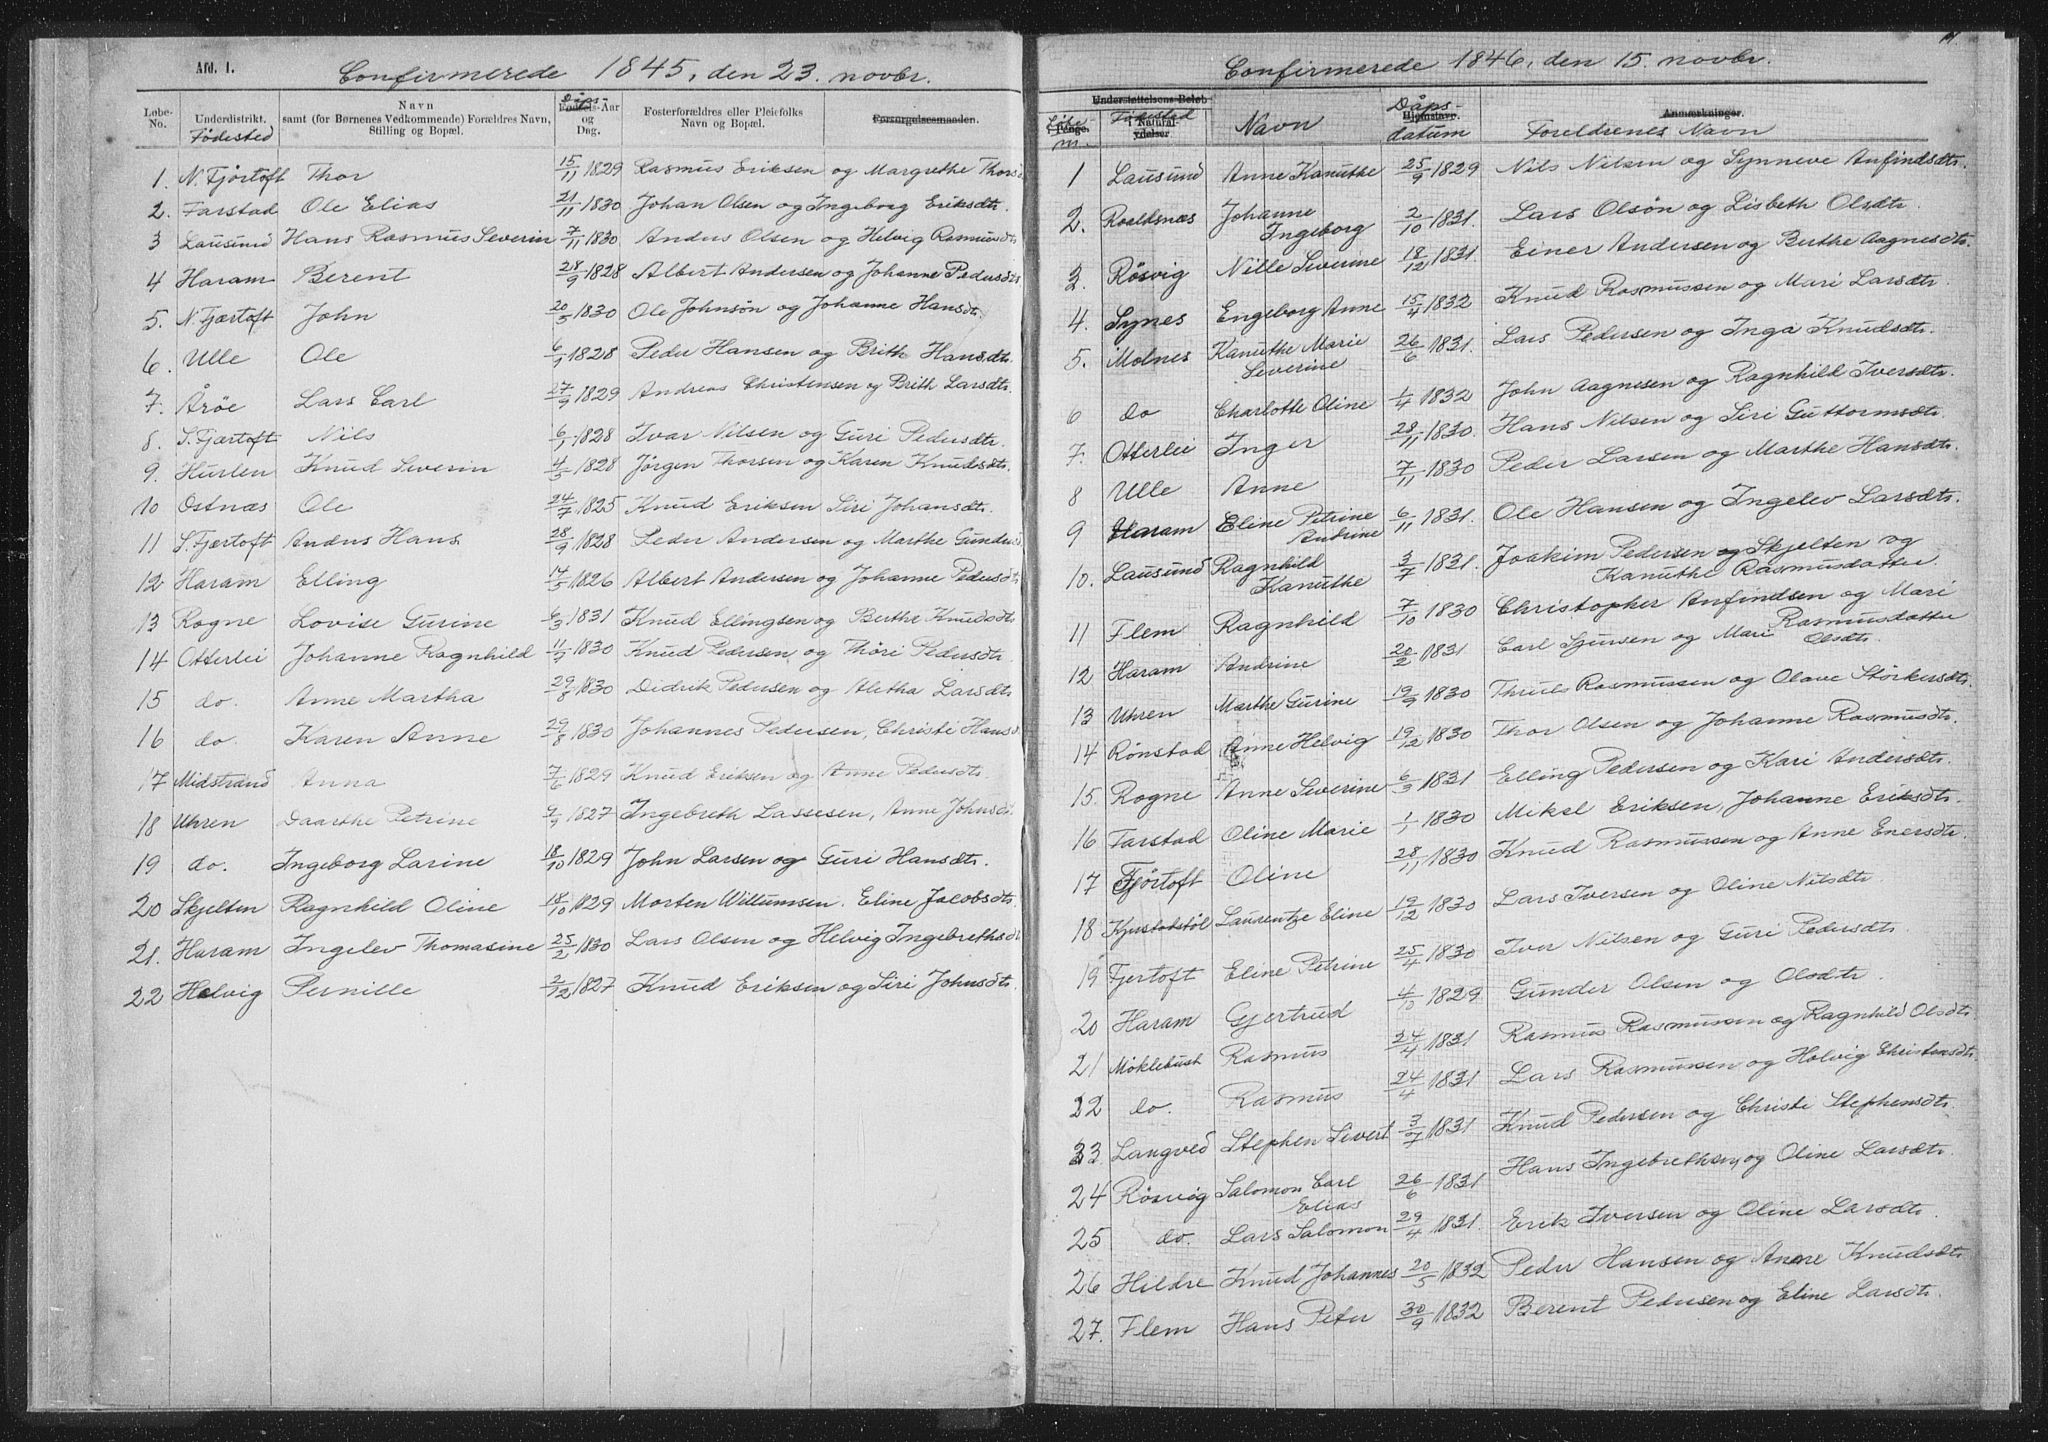 Afd. 1.
Confirmerede 1845, den 23. novbr.
Løbe-No.
Underdistrikt. Fødested
Navn samt (for Børnenes Vedkommende) Forældres Navn, Stilling og Bopæl.
Dåps- Fødsels-Aar og Dag.
Fosterforældres eller Pleiefolks Navn og Bopæl.
Forsorgelsesmaaden.
1. N. Fjørtoft Thor 15/11 1829 Rasmus Eriksen og Margrethe Thorsd
2. Farstad Ole Elias 21/11 1830 Johan Olsen og Ingeborg Eriksdtr.
3 Lausund Hans Rasmus Severin 7/11 1830 Andus Olsen og Helvig Rasmusdtr
4 Haram Berent 28/9 1828 Albert Andersen og Johanne Pedersdtr
5. N. Fjærtoft John 20/5 1830 Ole Johnsøn og Johanne Hansdtr.
6. Ulle Ole 6/1 1828 Peder Hansen og Brith Hansdtr.
7. Årøe Lars Carl 27/9 1829 Andreas Christensen og Brith Larsdtr.
8. S. Fjærtoft Nils 6/1 1828 Ivar Nilsen og Guri Pedersdtr.
9. Hurlen Knud Severin 4/5 1828 Jørgen Thorsen og Karen Knudsdtr.
10 Østnæs Ole 24/7 1825 Knud Eriksen Siri Johansdtr.
11 S. Fjærtoft Andus Hans 28/9 1828 Peder Andersen og Marthe Gundersd
12 Haram Elling 14/5 1826 Albert Andersen og Johanne Pedersdtr
13 Rogne Lovise Gurine 6/3 1831 Knud Ellingsen og Berthe Knudsdtr
14 Otterlei Johanne Ragnhild 11/7 1830 Knud Pedersen og Thöri Pedersdtr.
15 do. Anne Martha 29/8 1830 Didrik Pedersen og Aletha Larsdtr
16 do. Karen Anne 29/8 1830 Johannes Pedersen, Christi Hansd.
17 Midstrand Anna 7/6 1829 Knud Eriksen og Anne Pedersdtr.
18 Uhren Daarthe Petrine 9/9 1827 Ingebreth Lassesen, Anne Johnsd.
19 do. Ingeborg Larine 18/10 1829 John Larsen og Guri Hansdtr.
20 Skjelten Ragnhild Oline 18/10 1829 Morten Willumsen. Eline Jacobsdtr.
21. Haram Ingelev Thomasine 25/2 1830 Lars Olsen og Helvig Ingebrethsdtr
22 Helvig Pernille 2/12 1827 Knud Eriksen og Siri Johnsdtr.
Confirmerede 1846, den 15. novbr.
Understøttelsens Beløb
Løbe nr. i Penge.
Fødested i Natural-ydelser.
Navn
Dåps-datum Hjemstavn.
Anmærkninger. Foreldrenes Navn
1 Lausund Anne Kanuthe 25/9 1829 Nils Nilsen og Synneve Anfindsdtr.
2. Roaldsnæs Johanne Ingeborg 2/10 1831. Lars Olsøn og Lisbeth Olsdtr.
3. Røsvig Nille Severine 18/12 1831. Einer Andersen og Berthe Aagnesdtr.
4. Synes Engeborg Anne 15/4 1832 Knud Rasmussen og Mari Larsdtr.
5. Molnes Kanuthe Marie Severine 26/6 1831. Lars Pedersen og Inga Knudsdtr.
6 do Charlotte Oline 1/4 1832 John Aagnesen og Ragnhild Iversdtr.
7. Otterlei Inger 28/11 1830. Hans Nilsen og Siri Guttormsdtr.
8 Ulle Anne 7/11 1830 Peder Larsen og Marthe Hansdtr.
9 Haram Eline Petrine Andrine 6/11 1831. Ole Hansen og Ingelev Larsdtr.
10. Lausund Ragnhild Kanuthe 3/7 1831. Joakim Pedersen og Skjelten og Kanuthe Rasmusdatter.
11 Flem Ragnhild 7/10 1830 Christopher Anfindsen og Mari Rasmusdatter
12 Haram Andrine 20/2 1831 Carl Sjursen og Mari Olsdtr.
13 Uhren Marthe Gurine 19/9 1830 Thruls Rasmussen og Olave Størkersdtr.
14 Rønstad Anne Helvig 19/12 1830 Thor Olsen og Johanne Rasmusdtr.
15. Rogne Anne Severine 6/3 1831 Elling Pedersen og Kari Andersdtr.
16 Farstad Oline Marie 1/1 1830 Mikal Eriksen, Johanne Eriksdtr.
17 Fjørtoft Oline 28/11 1830 Knud Rasmussen og Anne Enersdtr.
18 Kjustadstøl Laurentze Eline 19/12 1830 Lars Iversen og Oline Nilsdtr.
19 Fjertoft Eline Petrine 25/4 1830 Iver Nilsen og Guri Pedersdtr.
20 Haram Gjertrud 4/10 1829 Gunder Olsen og Olsdtr.
21 Møklebust Rasmus 24/4 1831 Rasmus Rasmussen og Ragnhild Olsdtr.
22 do. Rasmus 24/4 1831 Lars Rasmussen og Helvig Christensdtr.
23. Langved Stephen Sivert 3/7 1831 Knud Pedersen og Christi Stephensdtr.
24 Røsvig Salomon Carl Elias 26/6 1831 Hans Ingebrethsen og Oline Larsdtr.
25 do. Lars Salomon 29/4 1831. Erik Iversen og Oline Larsdtr.
26 Hildre Knud Johannes 20/5 1832 Peder Hansen og Anne Knudsdtr.
27. Flem Hans Peter 30/9 1832 Berent Pedersen og Eline Larsdtr.